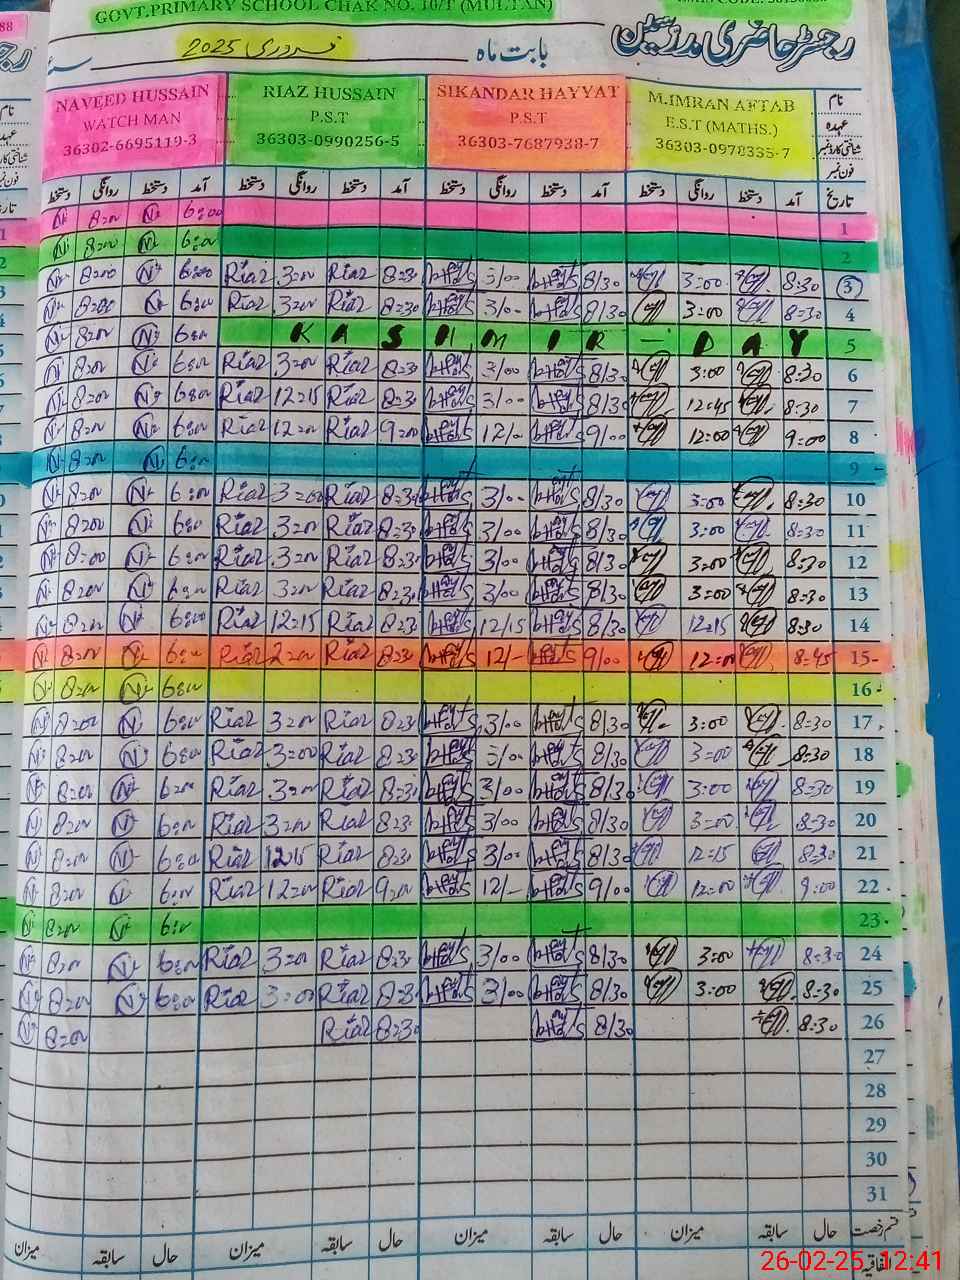 GOVT.PRIMARY SCHOOL CHAK NO. 10/T (MULTAN)
رجسٹر حاضری مدرسین
بابت ماہ فروری 2025
نام M.IMRAN AFTAB SIKANDAR HAYYAT RIAZ HUSSAIN NAVEED HUSSAIN
عہدہ E.S.T (MATHS.) P.S.T P.S.T WATCH MAN
شناختی کارڈ نمبر 36303-0978335-7 36303-7687938-7 36303-0990256-5 36302-6695119-3
فون نمبر
تاریخ آمد دستخط روانگی دستخط آمد دستخط روانگی دستخط آمد دستخط روانگی دستخط آمد دستخط روانگی دستخط
1 6:00 8:00
2 6:00 8:00
3 8:30 3:00 8/30 3/00 8:30 Riaz 3:00 Riaz 6:00 8:00
4 8:30 3:00 8/30 3/00 8:30 Riaz 3:00 Riaz 6:00 8:00
5 KASHMIR - DAY 6:00 8:00
6 8:30 3:00 8/30 3/00 8:30 Riaz 3:00 Riaz 6:00 8:00
7 8:30 12:45 8/30 3/00 8:30 Riaz 12:15 Riaz 6:00 8:00
8 9:00 12:00 9/00 12/- 9:00 Riaz 12:00 Riaz 6:00 8:00
9 6:00 8:00
10 8:30 3:00 8/30 3/00 8:30 Riaz 3:00 Riaz 6:00 8:00
11 8:30 3:00 8/30 3/00 8:30 Riaz 3:00 Riaz 6:00 8:00
12 8:30 3:00 8/30 3/00 8:30 Riaz 3:00 Riaz 6:00 8:00
13 8:30 3:00 8/30 3/00 8:30 Riaz 3:00 Riaz 6:00 8:00
14 8:30 12:15 8/30 12/15 8:30 Riaz 12:15 Riaz 6:00 8:00
15 8:45 12:00 9/00 12/- 8:30 Riaz Riaz 6:00 8:00
16 6:00 8:00
17 8:30 3:00 8/30 3/00 8:30 Riaz 3:00 Riaz 6:00 8:00
18 8:30 3:00 8/30 3/00 8:30 Riaz 3:00 Riaz 6:00 8:00
19 8:30 3:00 8/30 3/00 8:30 Riaz 3:00 Riaz 6:00 8:00
20 8:30 3:00 8/30 3/00 8:30 Riaz 3:00 Riaz 6:00 8:00
21 8:30 12:15 8/30 3/00 8:30 Riaz 12:15 Riaz 6:00 8:00
22 9:00 12:00 9/00 12/- 9:00 Riaz 12:00 Riaz 6:00 8:00
23 6:00 8:00
24 8:30 3:00 8/30 3/00 8:30 Riaz 3:00 Riaz 6:00 8:00
25 8:30 3:00 8/30 3/00 8:30 Riaz 3:00 Riaz 6:00 8:00
26 8:30 8/30 8:30 Riaz 8:00
27
28
29
30
31
قسم رخصت حال سابقہ میزان حال سابقہ میزان حال سابقہ میزان حال سابقہ میزان
اتفاقیہ
26-02-25, 12:41